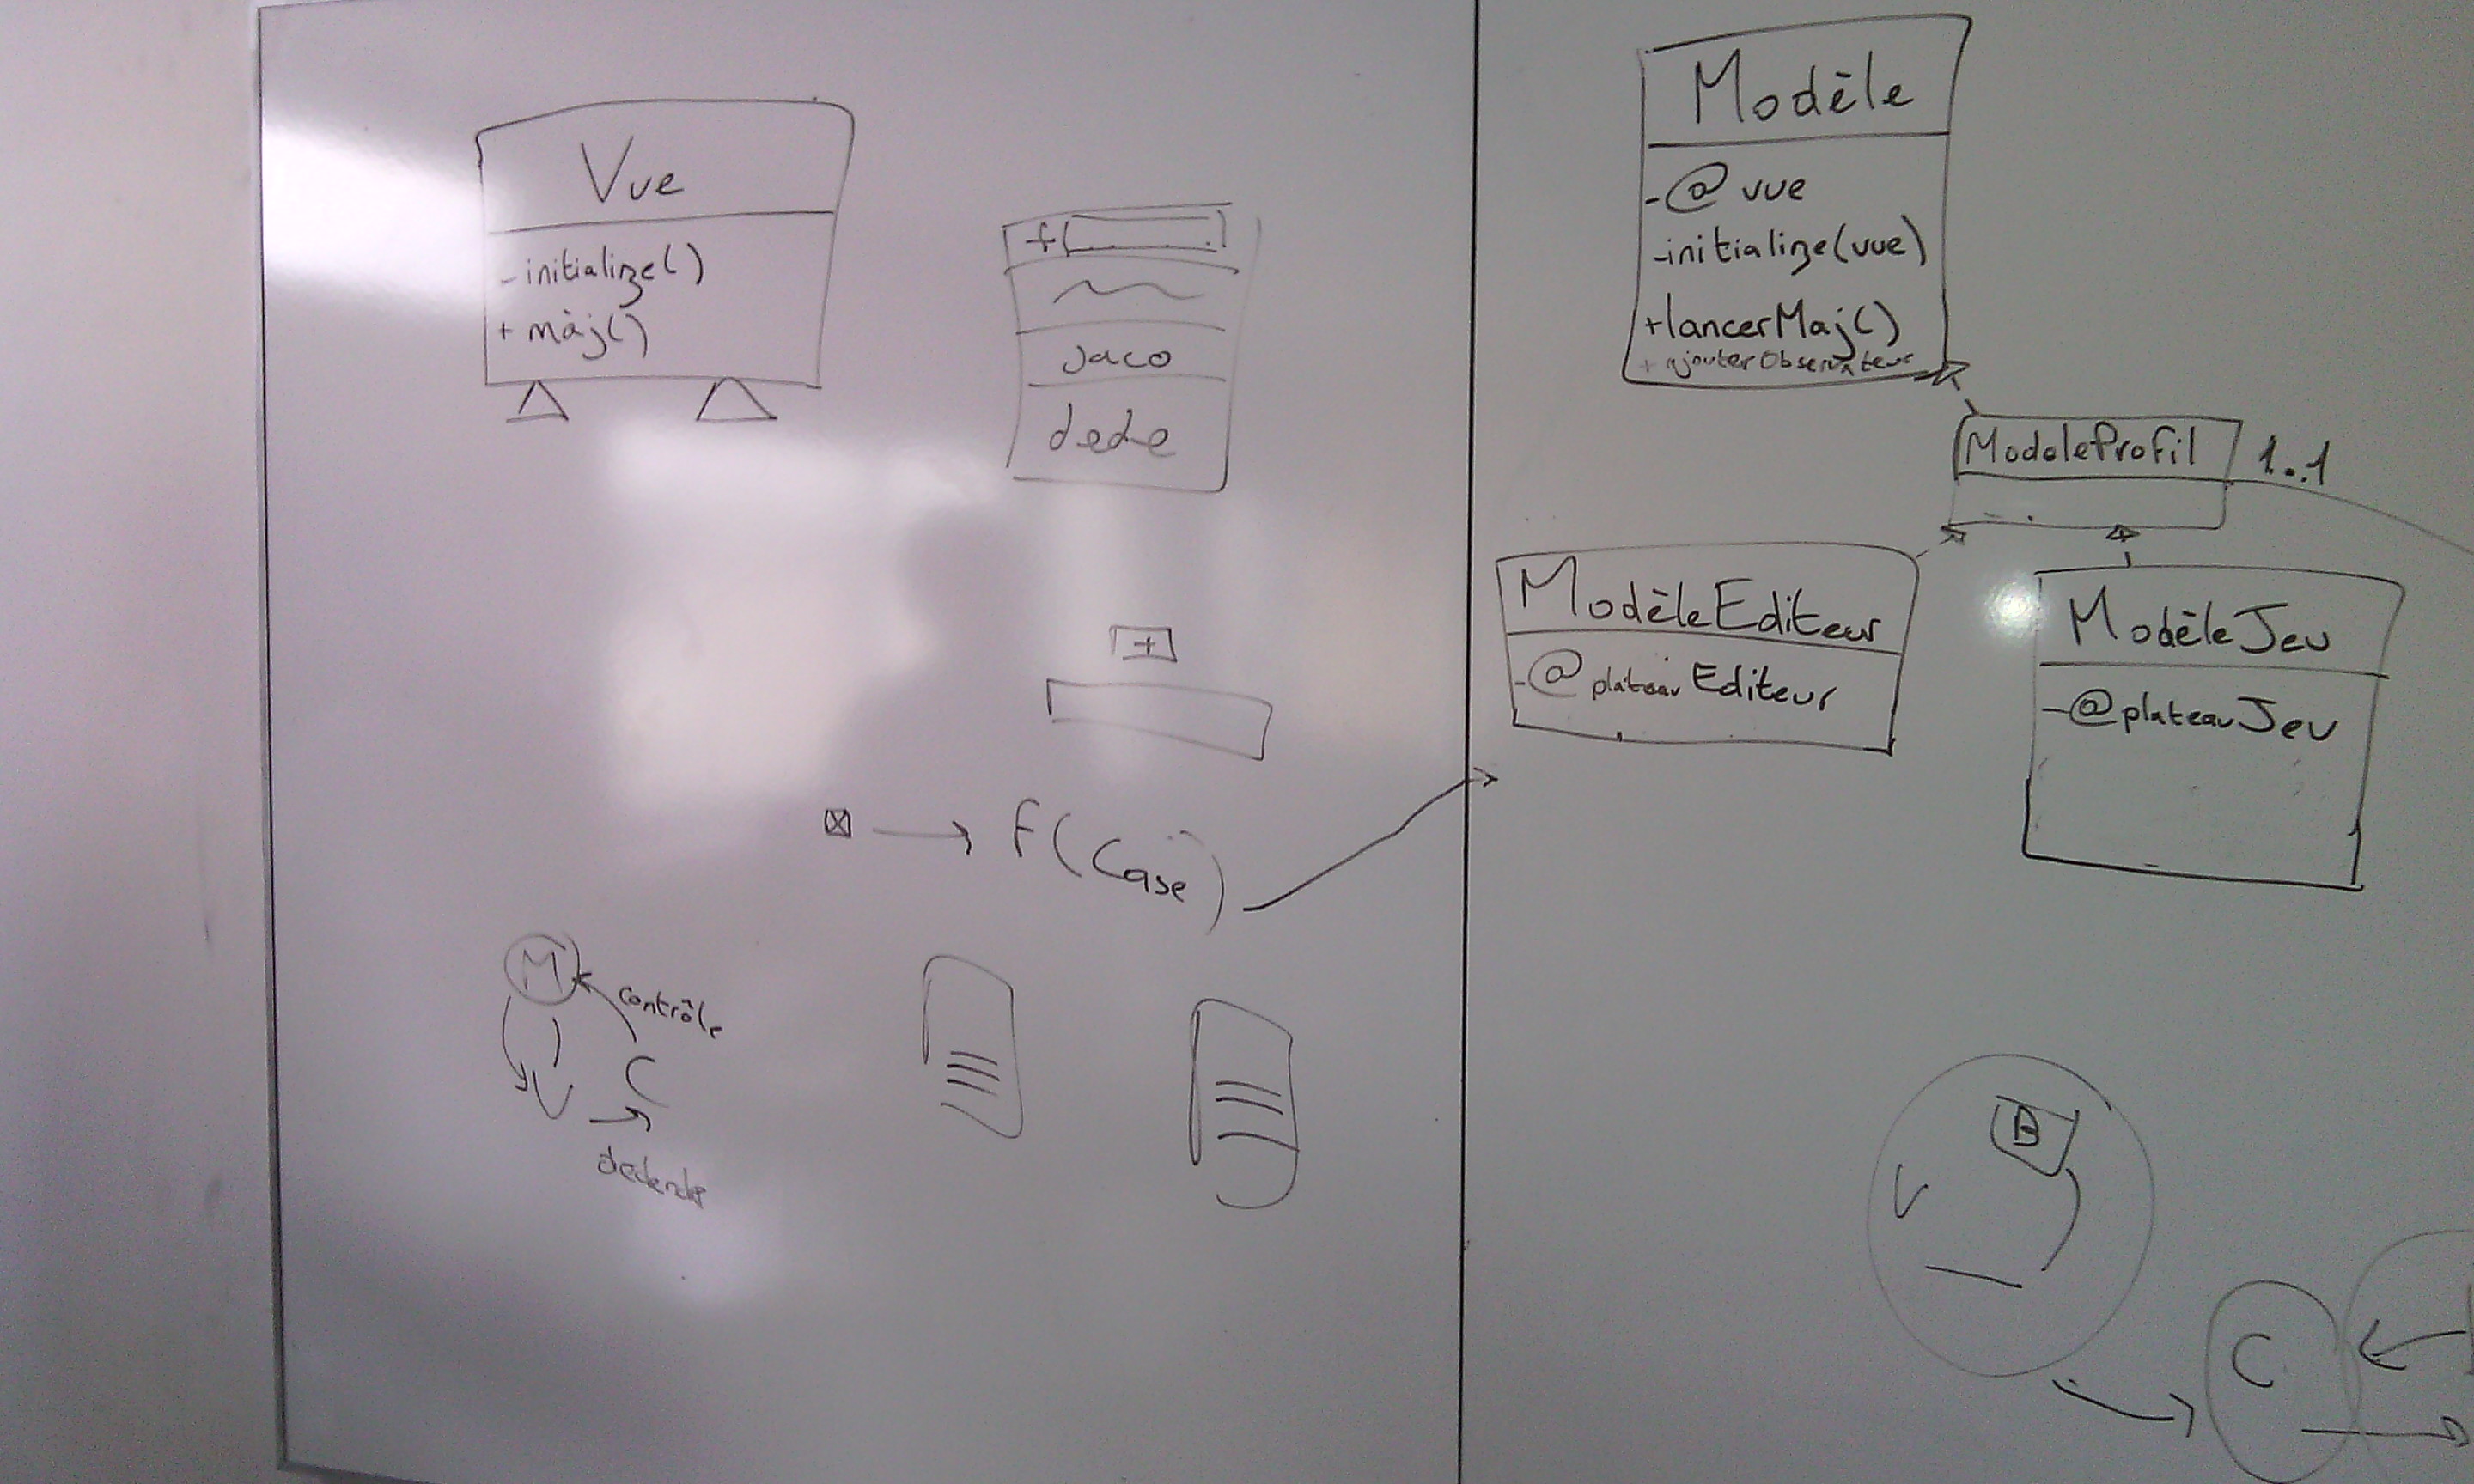 Vue
- initialize()
+ màj()
+
jaco
dede
+
f(Case)
M
contrôle
C
V
Modèle
-@ vue
-initialize(vue)
+lancerMaj()
+ ajouterObservateur
ModeleProfil
1..1
ModèleEditeur
-@plateauEditeur
ModèleJeu
-@plateauJeu
B
V
C